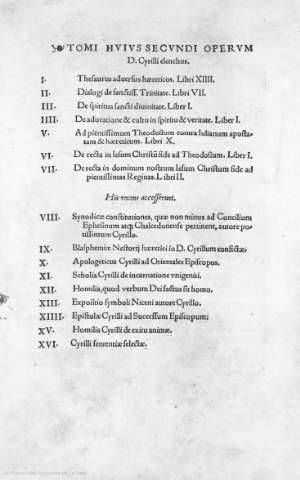 TOMI HVIVS SECVNDI OPERVM
D. Cyrilli elenchus.
I. Thesaurus aduersus hæreticos. Libri XIIII.
II. Dialogi de sanctiss. Trinitate. Libri VII.
III. De spiritus sancti diuinitate. Liber I.
IIII. De adoratione & cultu in spiritu & veritate. Liber I.
V. Ad pientissimum Theodosium contra Iulianum aposta-
tam & hæreticum. Libri X.
VI. De recta in Iesum Christũ fide ad Theodosium. Liber I.
VII. De recta in dominum nostrum Iesum Christum fide ad
pientissimas Reginas. Libri II.
Hic recens accesserunt.
VIII. Synodicæ constitutiones, quæ non minus ad Concilium
Ephesinum atq; Chalcedonense pertinent, autore po-
tissimum Cyrillo.
IX. Blasphemiæ Nestorij hæretici in D. Cyrillum confictæ.
X. Apologeticus Cyrilli ad Orientales Episcopos.
XI. Scholia Cyrilli de incarnatione vnigeniti.
XII. Homilia, quod verbum Dei factus sit homo.
XIII. Expositio symboli Niceni autore Cyrillo.
XIIII. Epistolæ Cyrilli ad Successum Episcopum.
XV. Homilia Cyrilli de exitu animæ.
XVI. Cyrilli sententiæ selectæ.